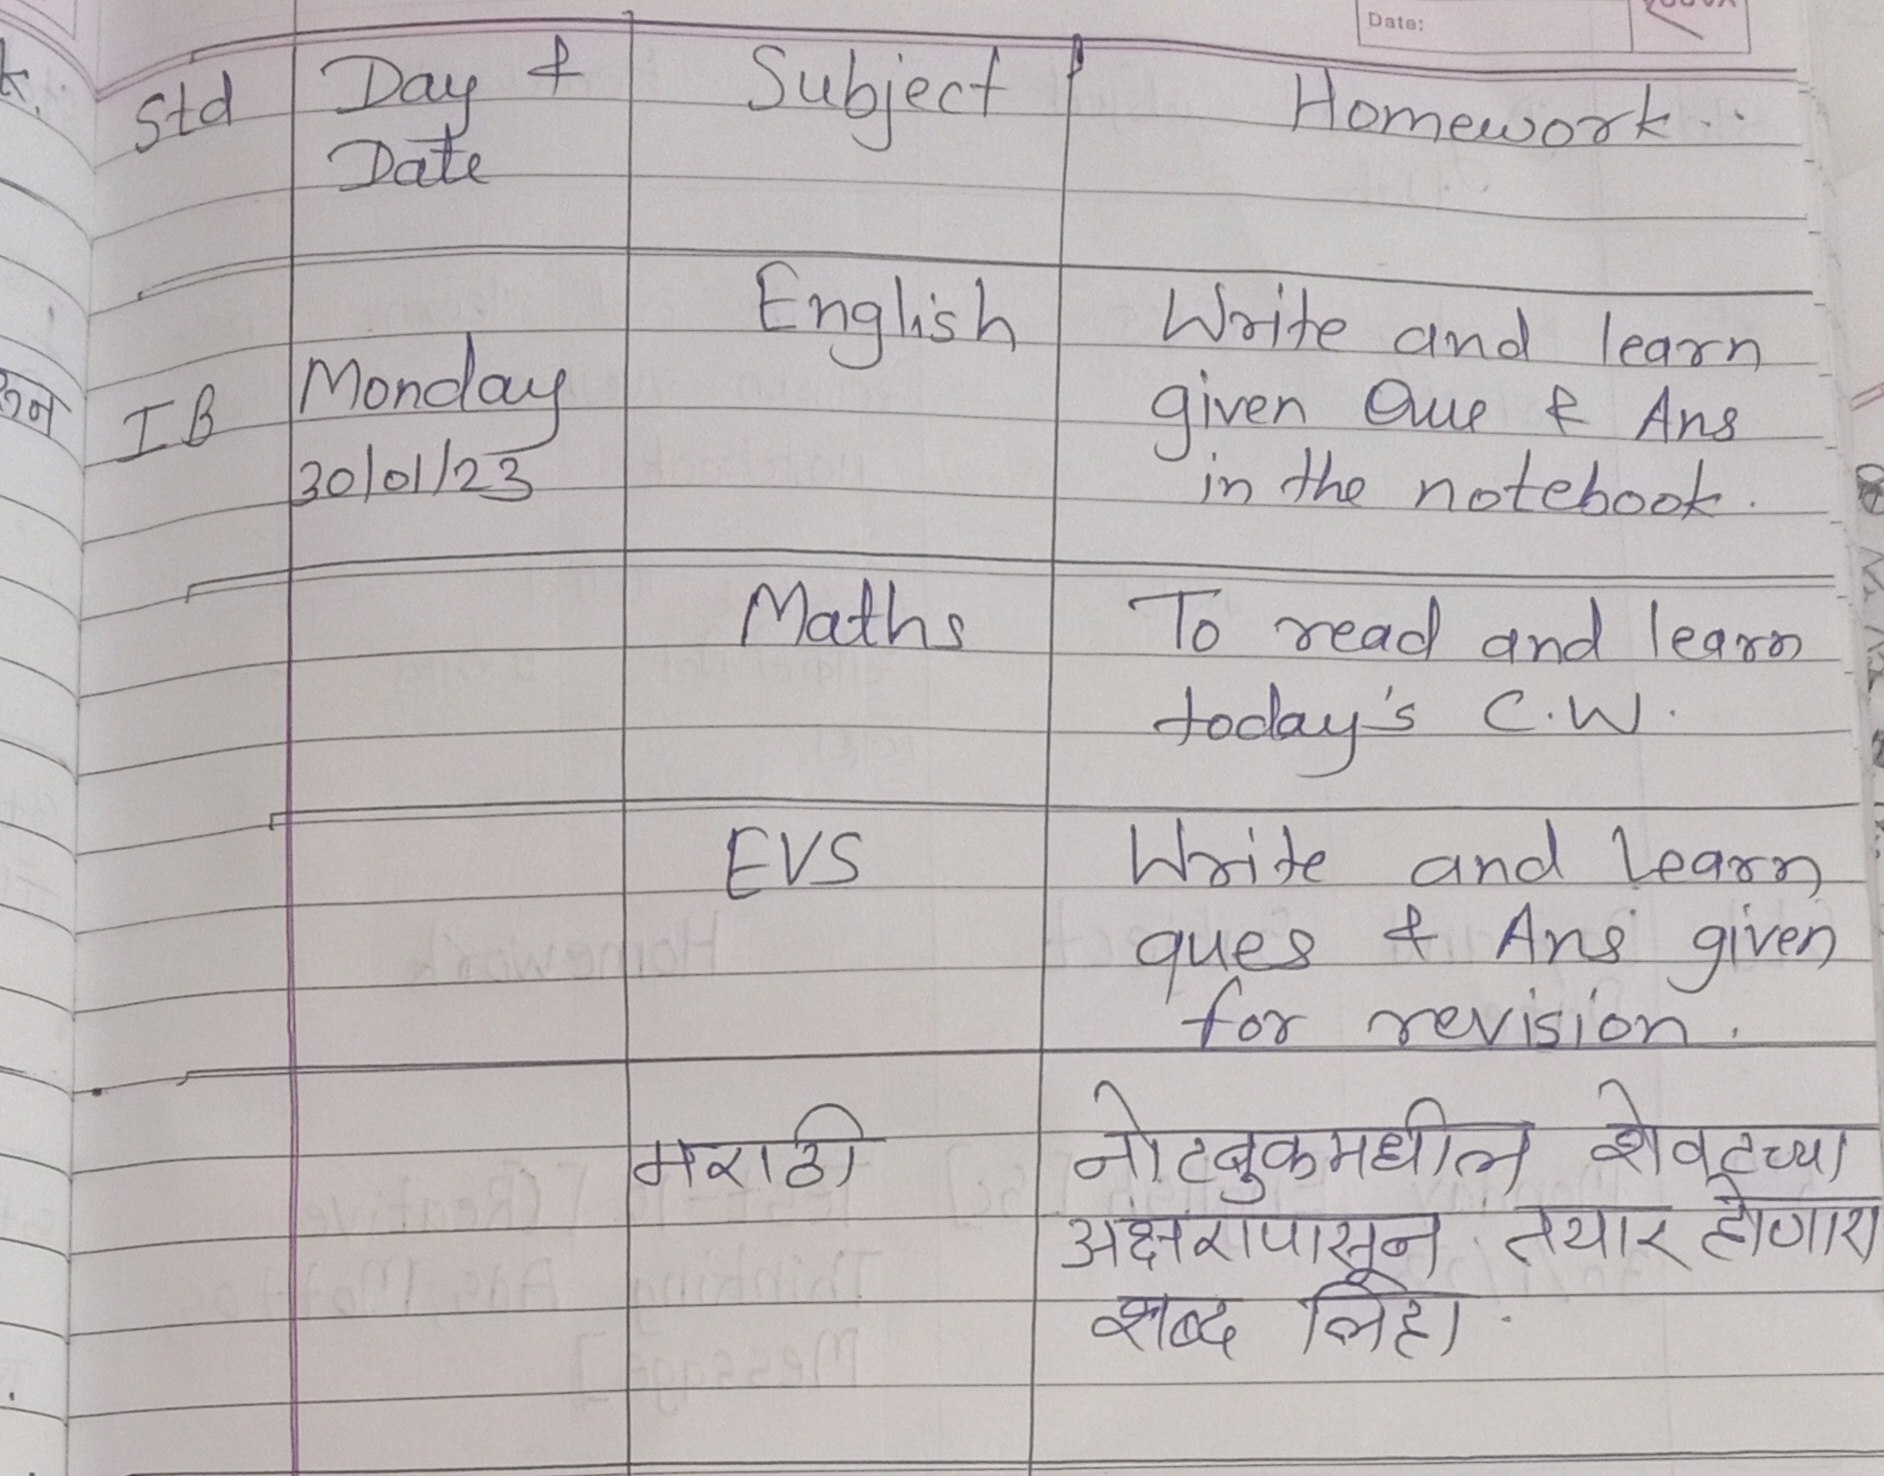 Date:
Std Day & Subject Homework..
Date
English Write and learn
Monday given Que & Ans
I B
30/01/23 in the notebook.
Maths To read and learn
today's C.W.
EVS Write and learn
ques & Ans given
for revision.
मराठी नोटबुकमधील शेवटच्या
अक्षरापासून तयार होणारा
शब्द लिहा.